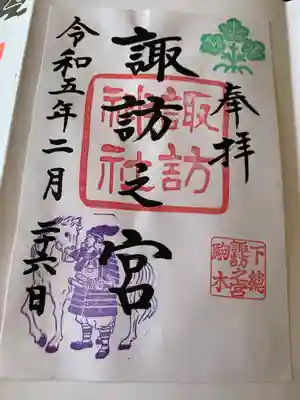 奉拝
下總
諏訪之宮
駒木
諏訪之宮
諏訪
神社
令和五年二月二十六日